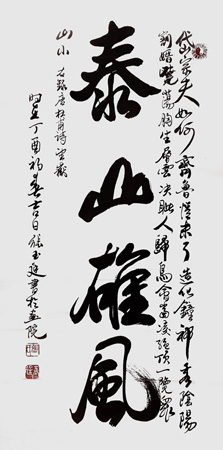 泰山雄風
岱宗夫如何齊魯青未了造化鐘神秀陰陽
割昏曉蕩胸生層雲決眥入歸鳥會當凌絕頂一覽眾
山小
右録唐杜甫詩望嶽
時在丁酉初春吉日張玉庭書於画院